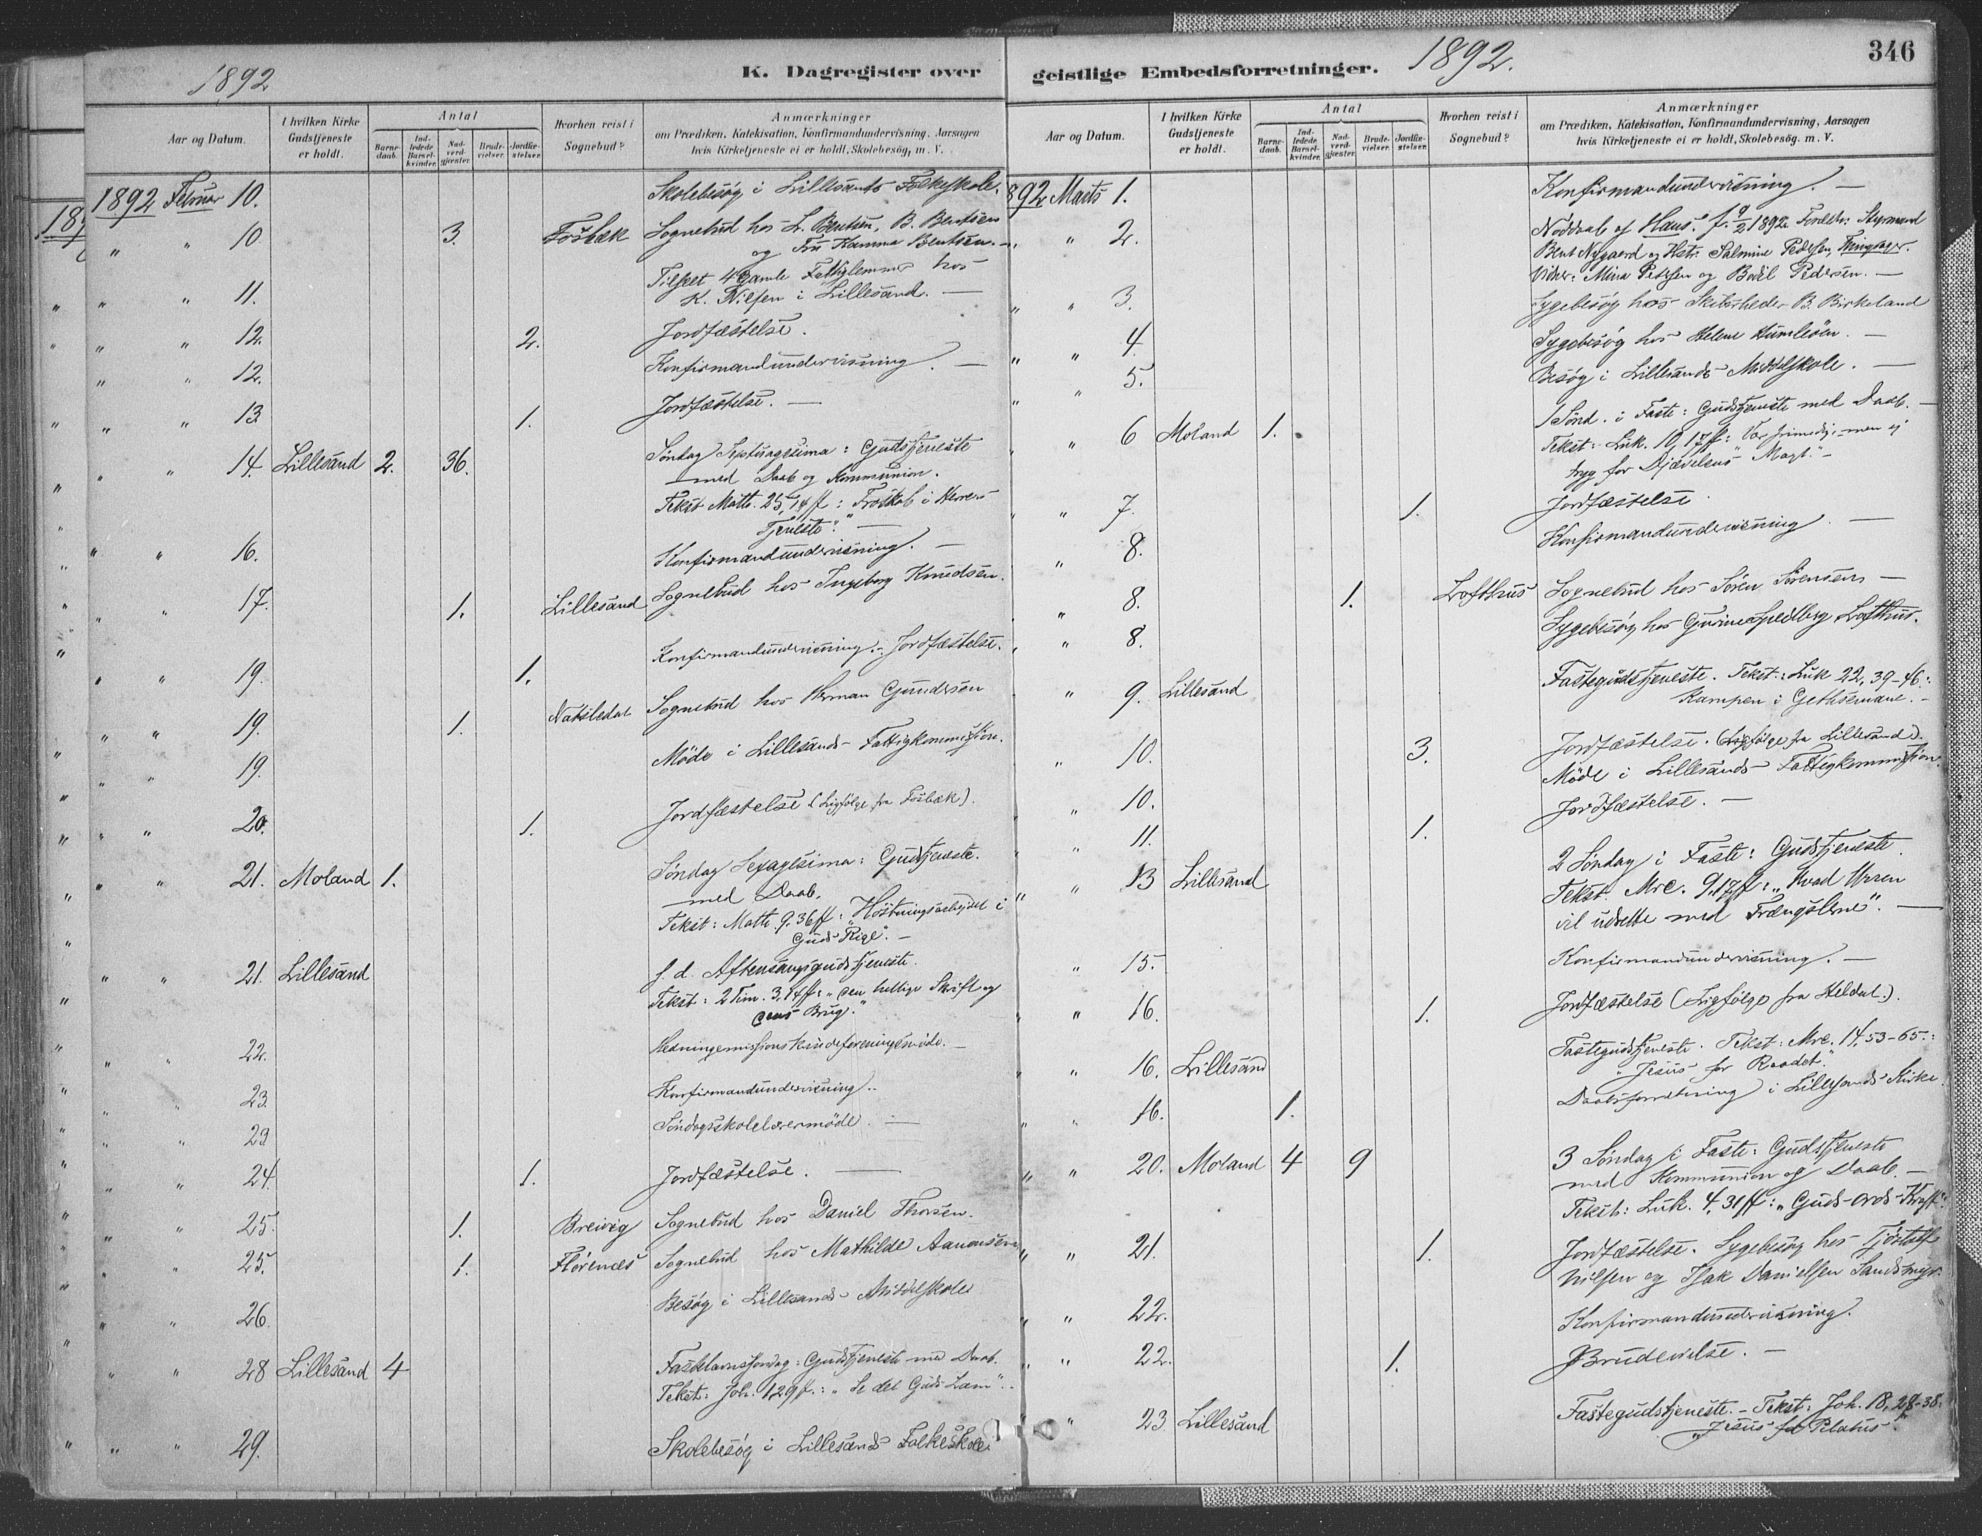 1892
K. Dagregister over
Aar og Datum.
I hvilken Kirke Gudstjeneste er holdt.
Antal
Barne-daab.
Ind-ledede Barsel-kvinder.
Nad-verd-gjenster.
Brude-vielser.
Jordfæ-stelser.
Hvorhen reist i Sognebud?
Anmærkninger
om Prædiken, Katekisation, Konfirmandundervisning, Aarsagen
hvis Kirketjeneste ei er holdt, Skolebesøg, m. V.
1892 Februar 10. Skolebesøg i Lillesands Folkeskole.
" " 10 3. Fosbæk Sognebud hos L. Bentsen, B. Bentsen
og Fru Hamma Bentsen.
" " 11. Tilseet 4 gamle Fattiglemmer hos
K. Nilsen i Lillesand. —
" " 12. 2. Jordfæstelse.
" " 12. Konfirmandundervisning. —
" " 13 1. Jordfæstelse. —
" " 14. Lillesand 2. 36. Søndag Septuagesima: Gudstjeneste
med Daab og Kommunion.
Tekst Matth. 25,14 ff: Troskab i Herrens
Tjeneste." —
" " 16. Konfirmandundervisning. —
" " 17. 1. Lillesand Sognebud hos Ingeborg Knudsen.
" " 19. 1. Konfirmandundervisning. Jordfæstelse.
" " 19. 1. Natsledal Sognebud hos Herman Gundersen
" " 19. Møde i Lillesands Fattigkommission.
" " 20. 1. Jordfæstelse (Ligfølge fra Fosbæk).
" " 21. Moland 1. Søndag Sexagesima: Gudstjeneste.
med Daab.
Tekst: Matth. 9,36 ff: "Høstningsarbeidet i
Guds Rige". —
" " 21. Lillesand s. d. Aftensangsgudstjeneste.
Tekst: 2 Tim. 3,14 ff: "Den hellige Skrift og
dens Brug."
" " 22. Hedningemissionskvindeforeningsmøde. —
" " 23 Konfirmandundervisning.
" " 23 Søndagsskolelærermøde. —
" " 24. 1. Jordfæstelse. —
" " 25. 1. Breivig Sognebud hos Daniel Thorsen.
" " 25. 1. Flørenæs Sognebud hos Mathilde Aanonsen
" " 26. Besøg i Lillesands Middelskole
" " 28 Lillesand 4 Fastelavnssøndag: Gudstjeneste med Daab.
Tekst: Joh. 1,29 f.: "Se det Guds Lam".
" " 29. Skolebesøg i Lillesands Folkeskole
geistlige Embedsforretninger. 1892. 346
Aar og Datum.
I hvilken Kirke Gudstjeneste er holdt.
Antal
Barne-daab.
Ind-ledede Barsel-kvinder.
Nad-verd-gjenster.
Brude-vielser.
Jordfæ-stelser.
Hvorhen reist i Sognebud?
Anmærkninger
om Prædiken, Katekisation, Konfirmandundervisning, Aarsagen
hvis Kirketjeneste ei er holdt, Skolebesøg. m. V.
892 Marts 1. Konfirmandundervisning. —
" 2. Nøddaab af Hans, f. 9/2 1892. Forældr: Styrmand
Bent Nygaard og Hstr. Salmine Pedersen, Tingsaker.
Vidner: Mina Pedersen og Bodil Pedersen. —
" " 3. Sygebesøg hos Skibsrheder B. Birkeland
" " 4. Sygebesøg hos Helene Humleøen. —
" " 5. Besøg i Lillesands Middelskole. —
" " 6 Moland 1. 1 Sønd. i Faste: Gudstjeneste med Daab. —
Tekst: Luk. 10,17 ff: Vær frimodig, men ej
tryg for Djævelens Magt." —
" " 7. 1. Jordfæstelse.
" 8. Konfirmandundervisning. —
" 8. 1. Lofthus Sognebud hos Søren Sørensen —
" " 8. Sygebesøg hos Gurine Spedberg Lofthus.
" 9. Lillesand Fastegudstjeneste. Tekst: Luk 22,39-46:
Kampen i Gethsemane. —
" 10. 3. Jordfæstelse. (Ligfølge fra Lillesand).
" 10. Møde i Lillesands Fattigkommission.
" " 11. 1. Jordfæstelse. —
" " 13 Lillesand 2 Søndag i Faste: Gudstjeneste.
Tekst: Mrc. 9,17 ff: "Hvad Herren
vil udrette med Trængslerne". —
" 15. Konfirmandundervisning. —
" " 16. 1. Jordfæstelse (Ligfølge fra Heldal.).
" " 16. Lillesand Fastegudstjeneste. Tekst: Mrc. 14,53-65:
"Jesus for Raadet."
" " 16. 1. Daabsforretning i Lillesands Kirke.
" " 20. Moland 4 9 3 Søndag i Faste: Gudstjeneste
med Kommunion og Daab. —
Tekst: Luk. 4,31 ff: "Guds-Ords-Kraft".
" " 21. 1. Jordfæstelse. Sygebesøg hos Tjøstolf
Nielsen og Isak Danielsen Sandsmyr.
" " 22. Konfirmandundervisning.
" " 22. 1. Brudevielse. —
" 23 Lillesand Fastegudstjeneste. - Tekst: Joh. 18,28-38.
"Jesus for Pilatus".